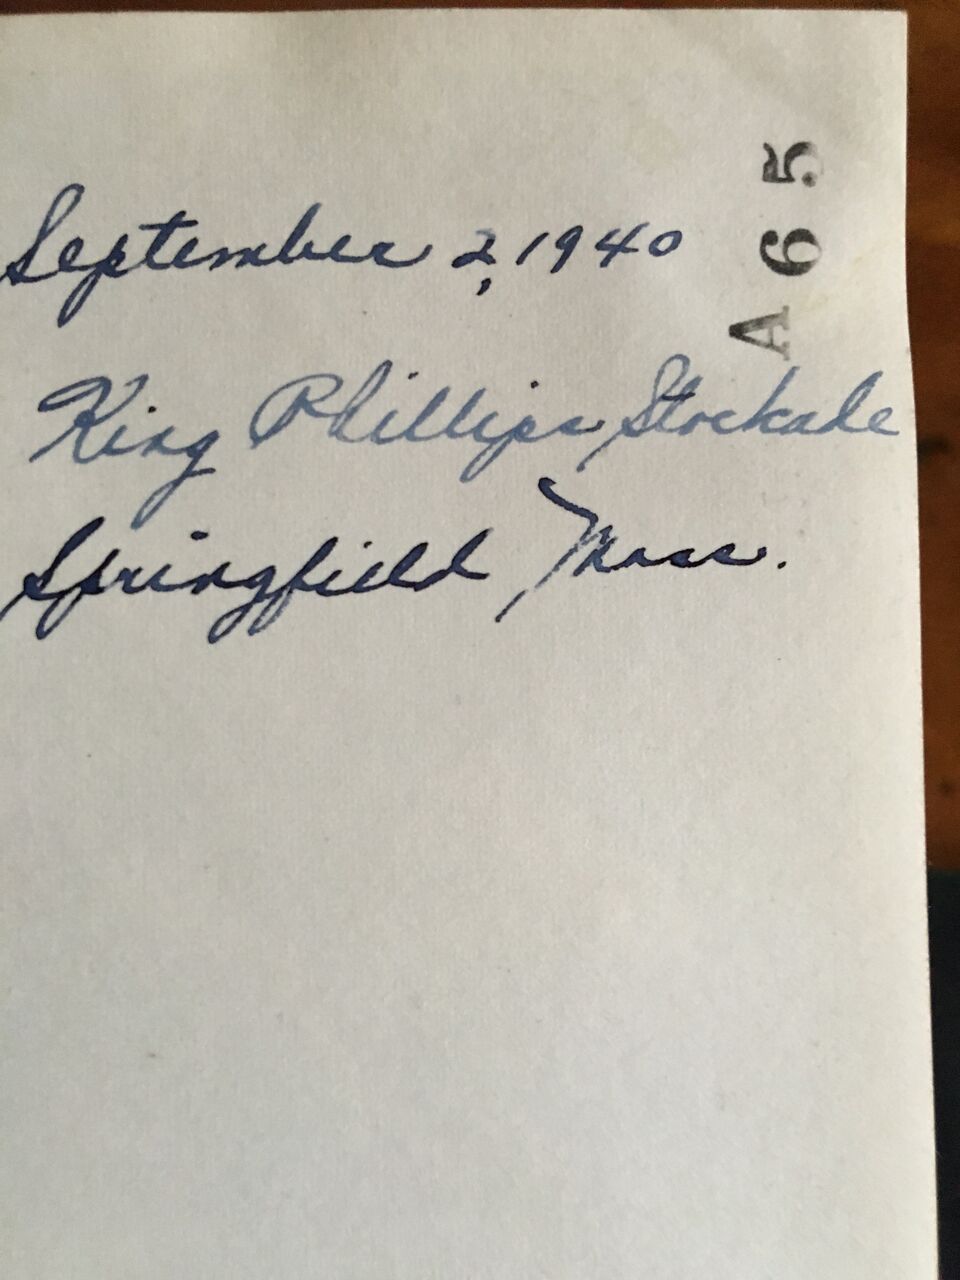 September 2, 1940
King Phillips Stockade
Springfield Mass.
A65